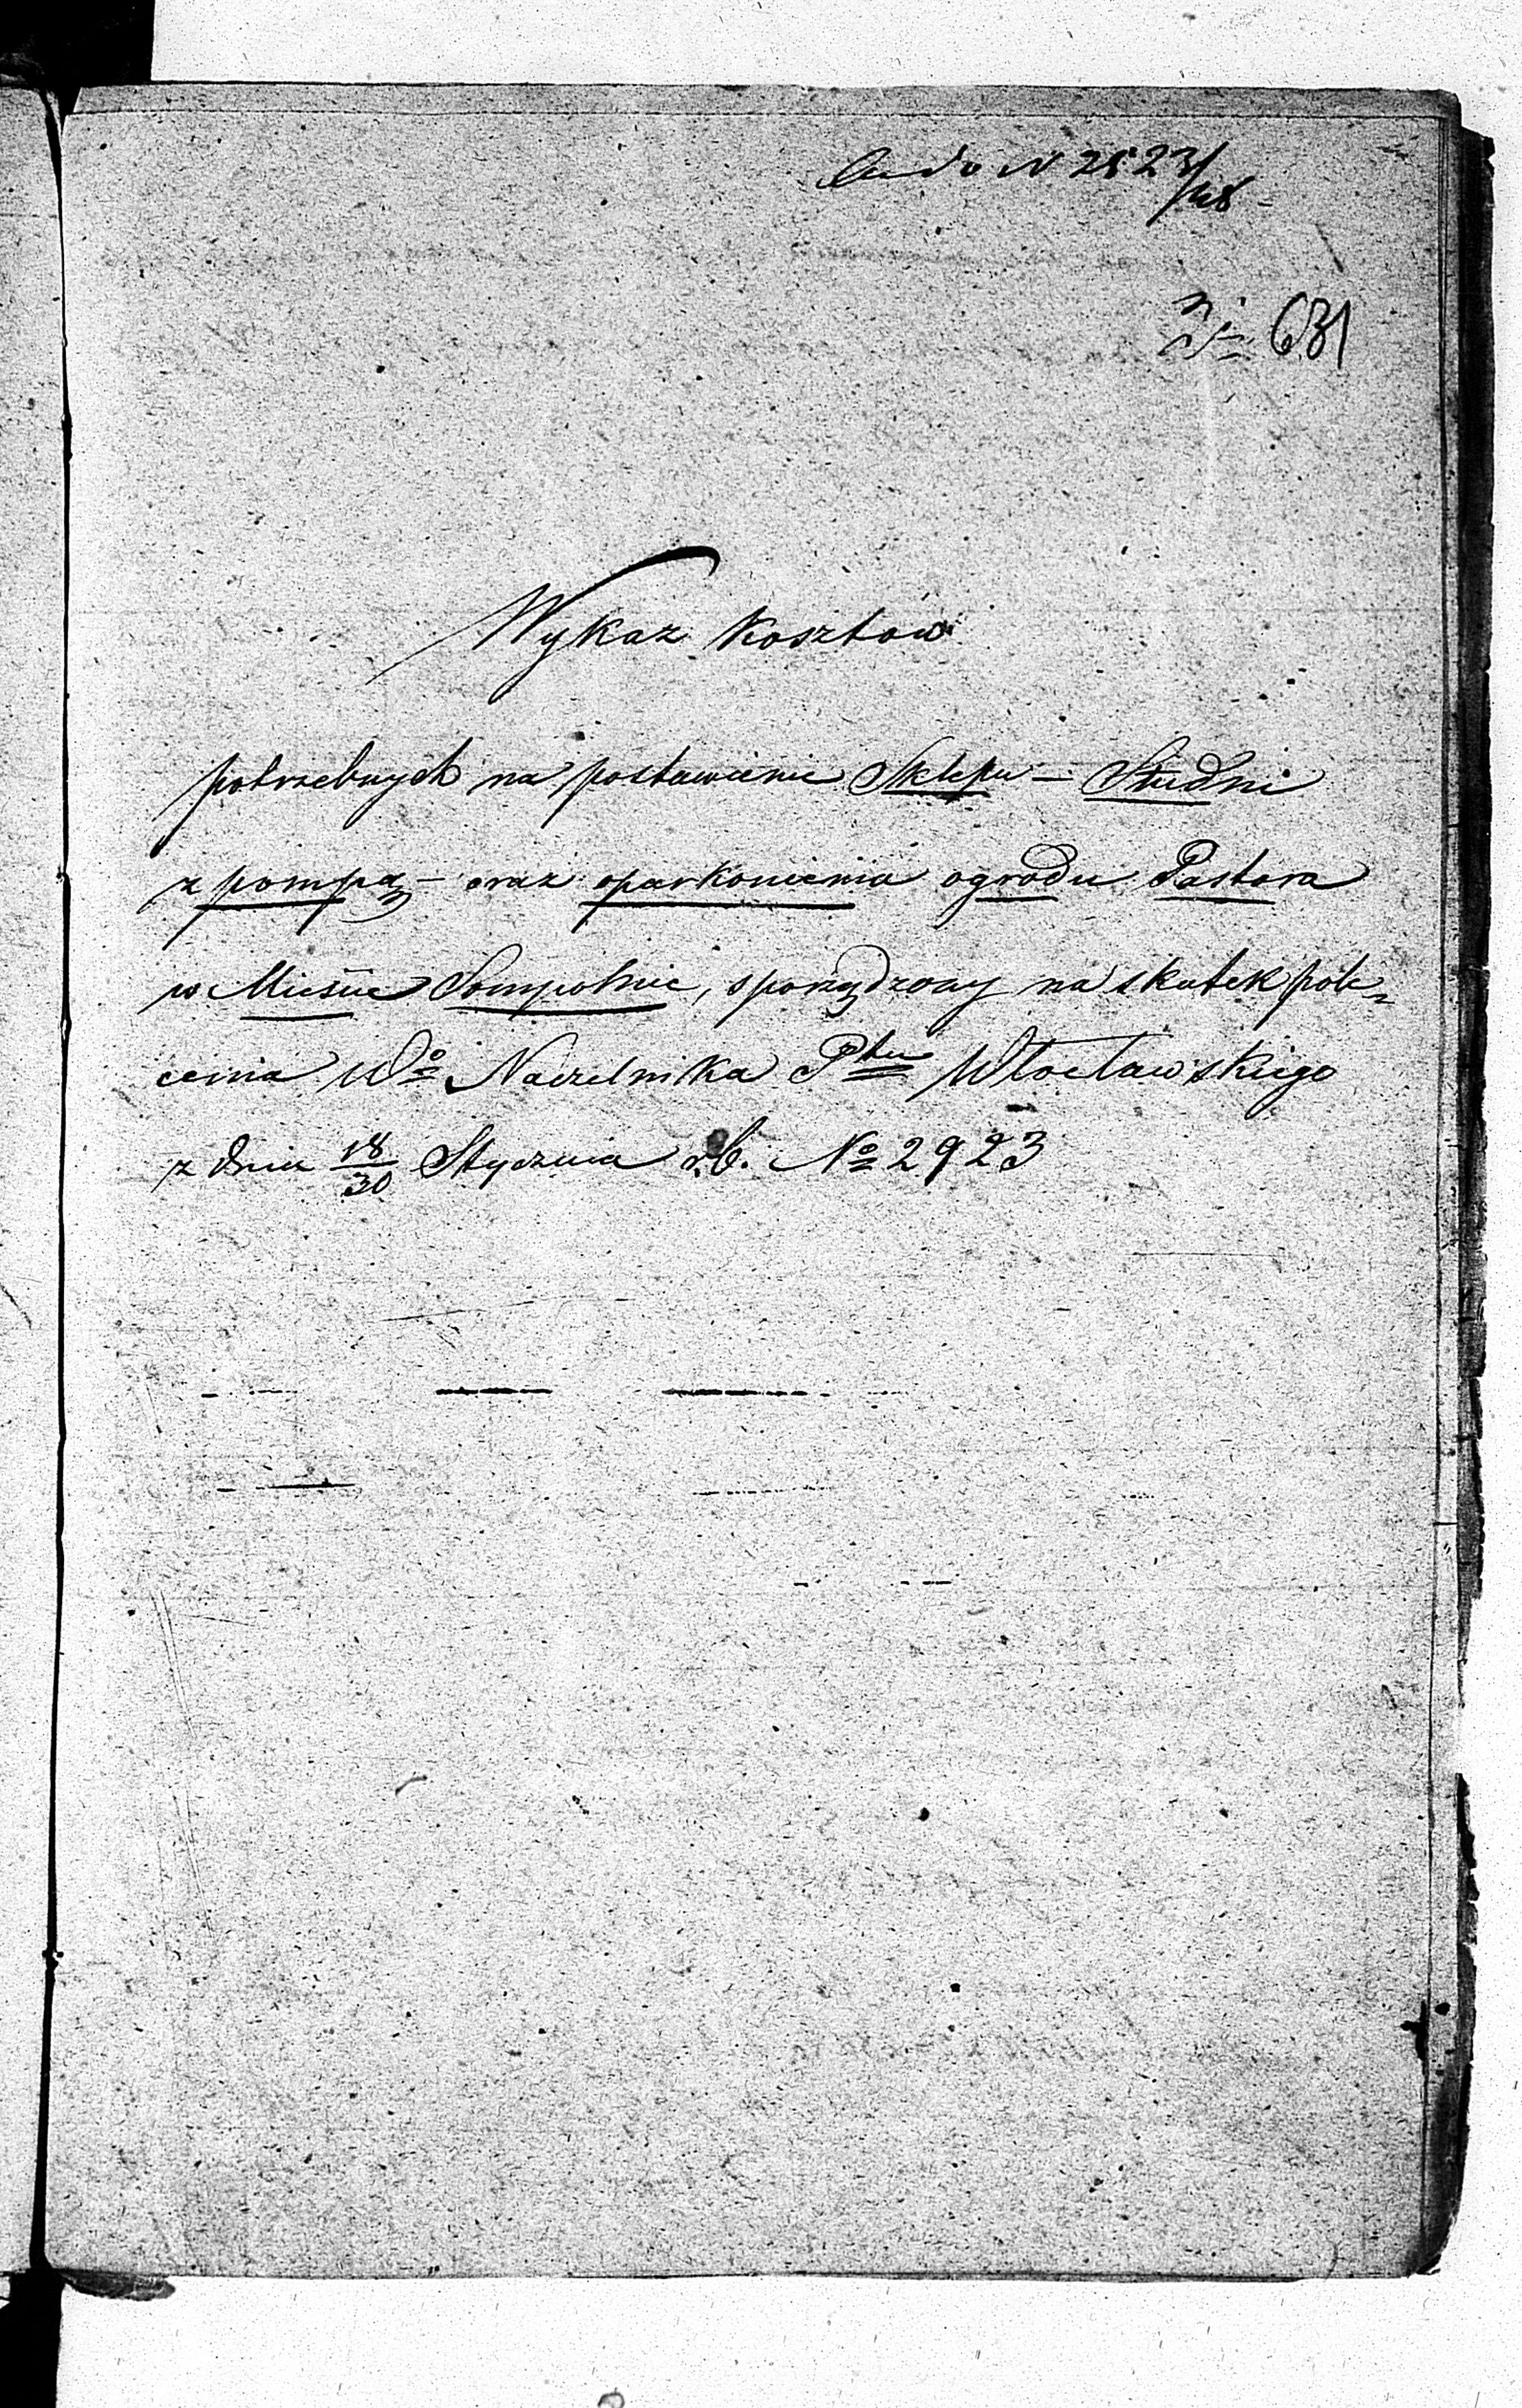 ad N 2523/48
631
Wykaz Kosztów
potrzebnych na postawienie Sklepu – Studni
z pompą – oraz oparkonienia ogrodu Pastora
w Mieście Sompolnie, sporządzony na skutek pole=
cenia Wo Naczelnika Ptu Włocławskiego
z dnia 18/30 Stycznia r.b. No 2923